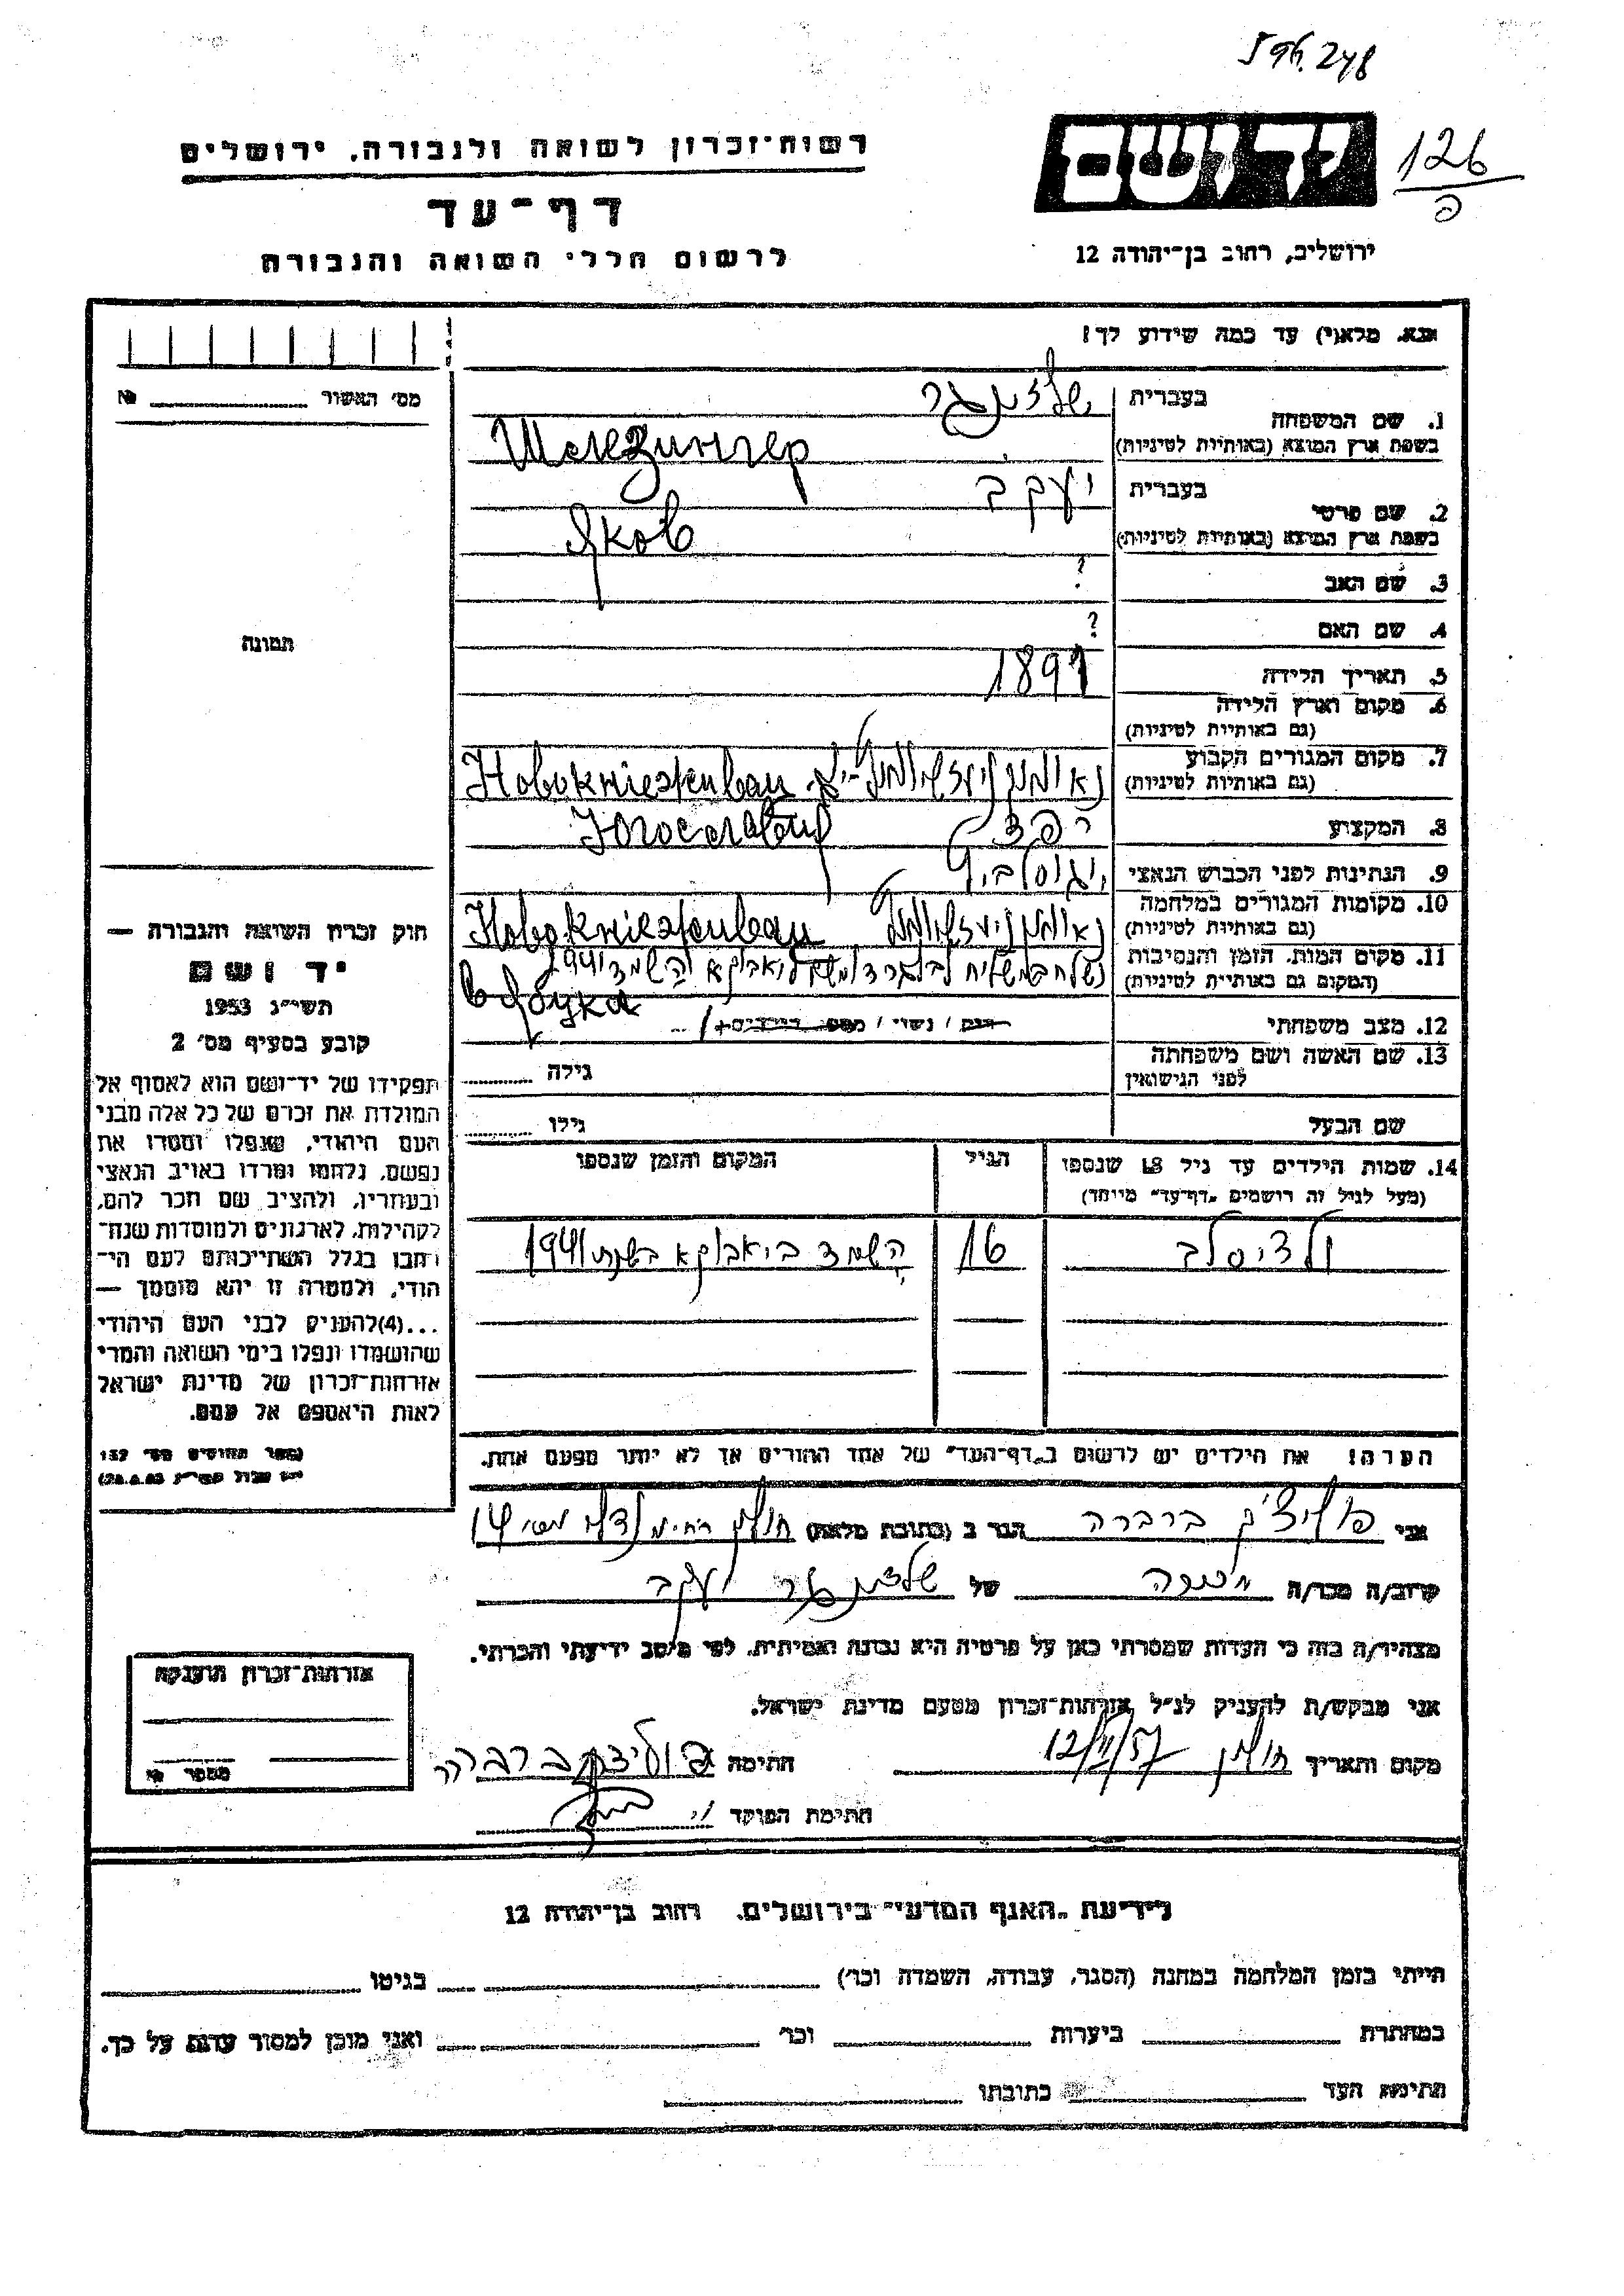 126
ה
רשות־זכרון לשואה ולגבורה, ירושלים
דף־עד
לרשום חללי השואה והגבורה
יד ושם
ירושלים, רחוב בן־יהודה 12
אנא, מלא(י) עד כמה שידוע לך!
מס׳ האשור № 
תמונה
1. שם המשפחה בעברית שלזינגר
בשפת ארץ המוצא (באותיות לטיניות) Шлезингер
2. שם פרטי בעברית יעקב
בשפת ארץ המוצא (באותיות לטיניות) Яков
3. שם האב ?
4. שם האם ?
5. תאריך הלידה 1891
6. מקום וארץ הלידה
(גם באותיות לטיניות)
7. מקום המגורים הקבוע
(גם באותיות לטיניות)
8. המקצוע
9. הנתינות לפני הכבוש הנאצי יוגוסלבית
10. מקומות המגורים במלחמה
(גם באותיות לטיניות)
11. מקום המות, הזמן והנסיבות 1941
(המקום גם באותיות לטיניות)
12. מצב משפחתי רוק / נשוי / מספר הילדים
13. שם האשה ושם משפחתה גילה
לפני הנישואין
שם הבעל גילו
14. שמות הילדים עד גיל 18 שנספו הגיל המקום והזמן שנספו
(מעל לגיל זה רושמים "דף־עד" מיוחד)
ולדיסלב 16 השמד ביאבוקא בשנת 1941
הערה: את הילדים יש לרשום ב"דף־העד" של אחד ההורים אך לא יותר מפעם אחת.
חוק זכרון השואה והגבורה —
יד ושם
תשי״ג 1953
קובע בסעיף מס׳ 2
תפקידו של יד־ושם הוא לאסוף אל
המולדת את זכרם של כל אלה מבני
העם היהודי, שנפלו ומסרו את
נפשם, נלחמו ומרדו באויב הנאצי
ובעוזריו, ולהציב שם וזכר להם,
לקהילות, לארגונים ולמוסדות שנח־
רבו בגלל השתייכותם לעם הי־
הודי, ולמטרה זו יהא מוסמך —
...(4)להעניק לבני העם היהודי
שהושמדו ונפלו בימי השואה והמרי
אזרחות־זכרון של מדינת ישראל
לאות היאספם אל עמם.
אני ברברה הגר ב (כתובת מלאה) חולון
קרוב/ה מכר/ה מכרה של שלזינגר יעקב
מצהיר/ה בזה כי העדות שמסרתי כאן על פרטיה היא נכונה ואמיתית, לפי מיטב ידיעתי והכרתי.
אני מבקש/ת להעניק לנ״ל אזרחות־זכרון מטעם מדינת ישראל.
מקום ותאריך חולון 12/II/57 חתימה ברברה
חתימת הפוקד
אזרחות־זכרון הוענקה
מספר
לידיעת "האגף המדעי" בירושלים, רחוב בן־יהודה 12
הייתי בזמן המלחמה במחנה (הסגר, עבודה, השמדה וכו׳) בגיטו
במחתרת ביערות וכו׳ ואני מוכן למסור עדות על כך.
חתימת העד כתובתו